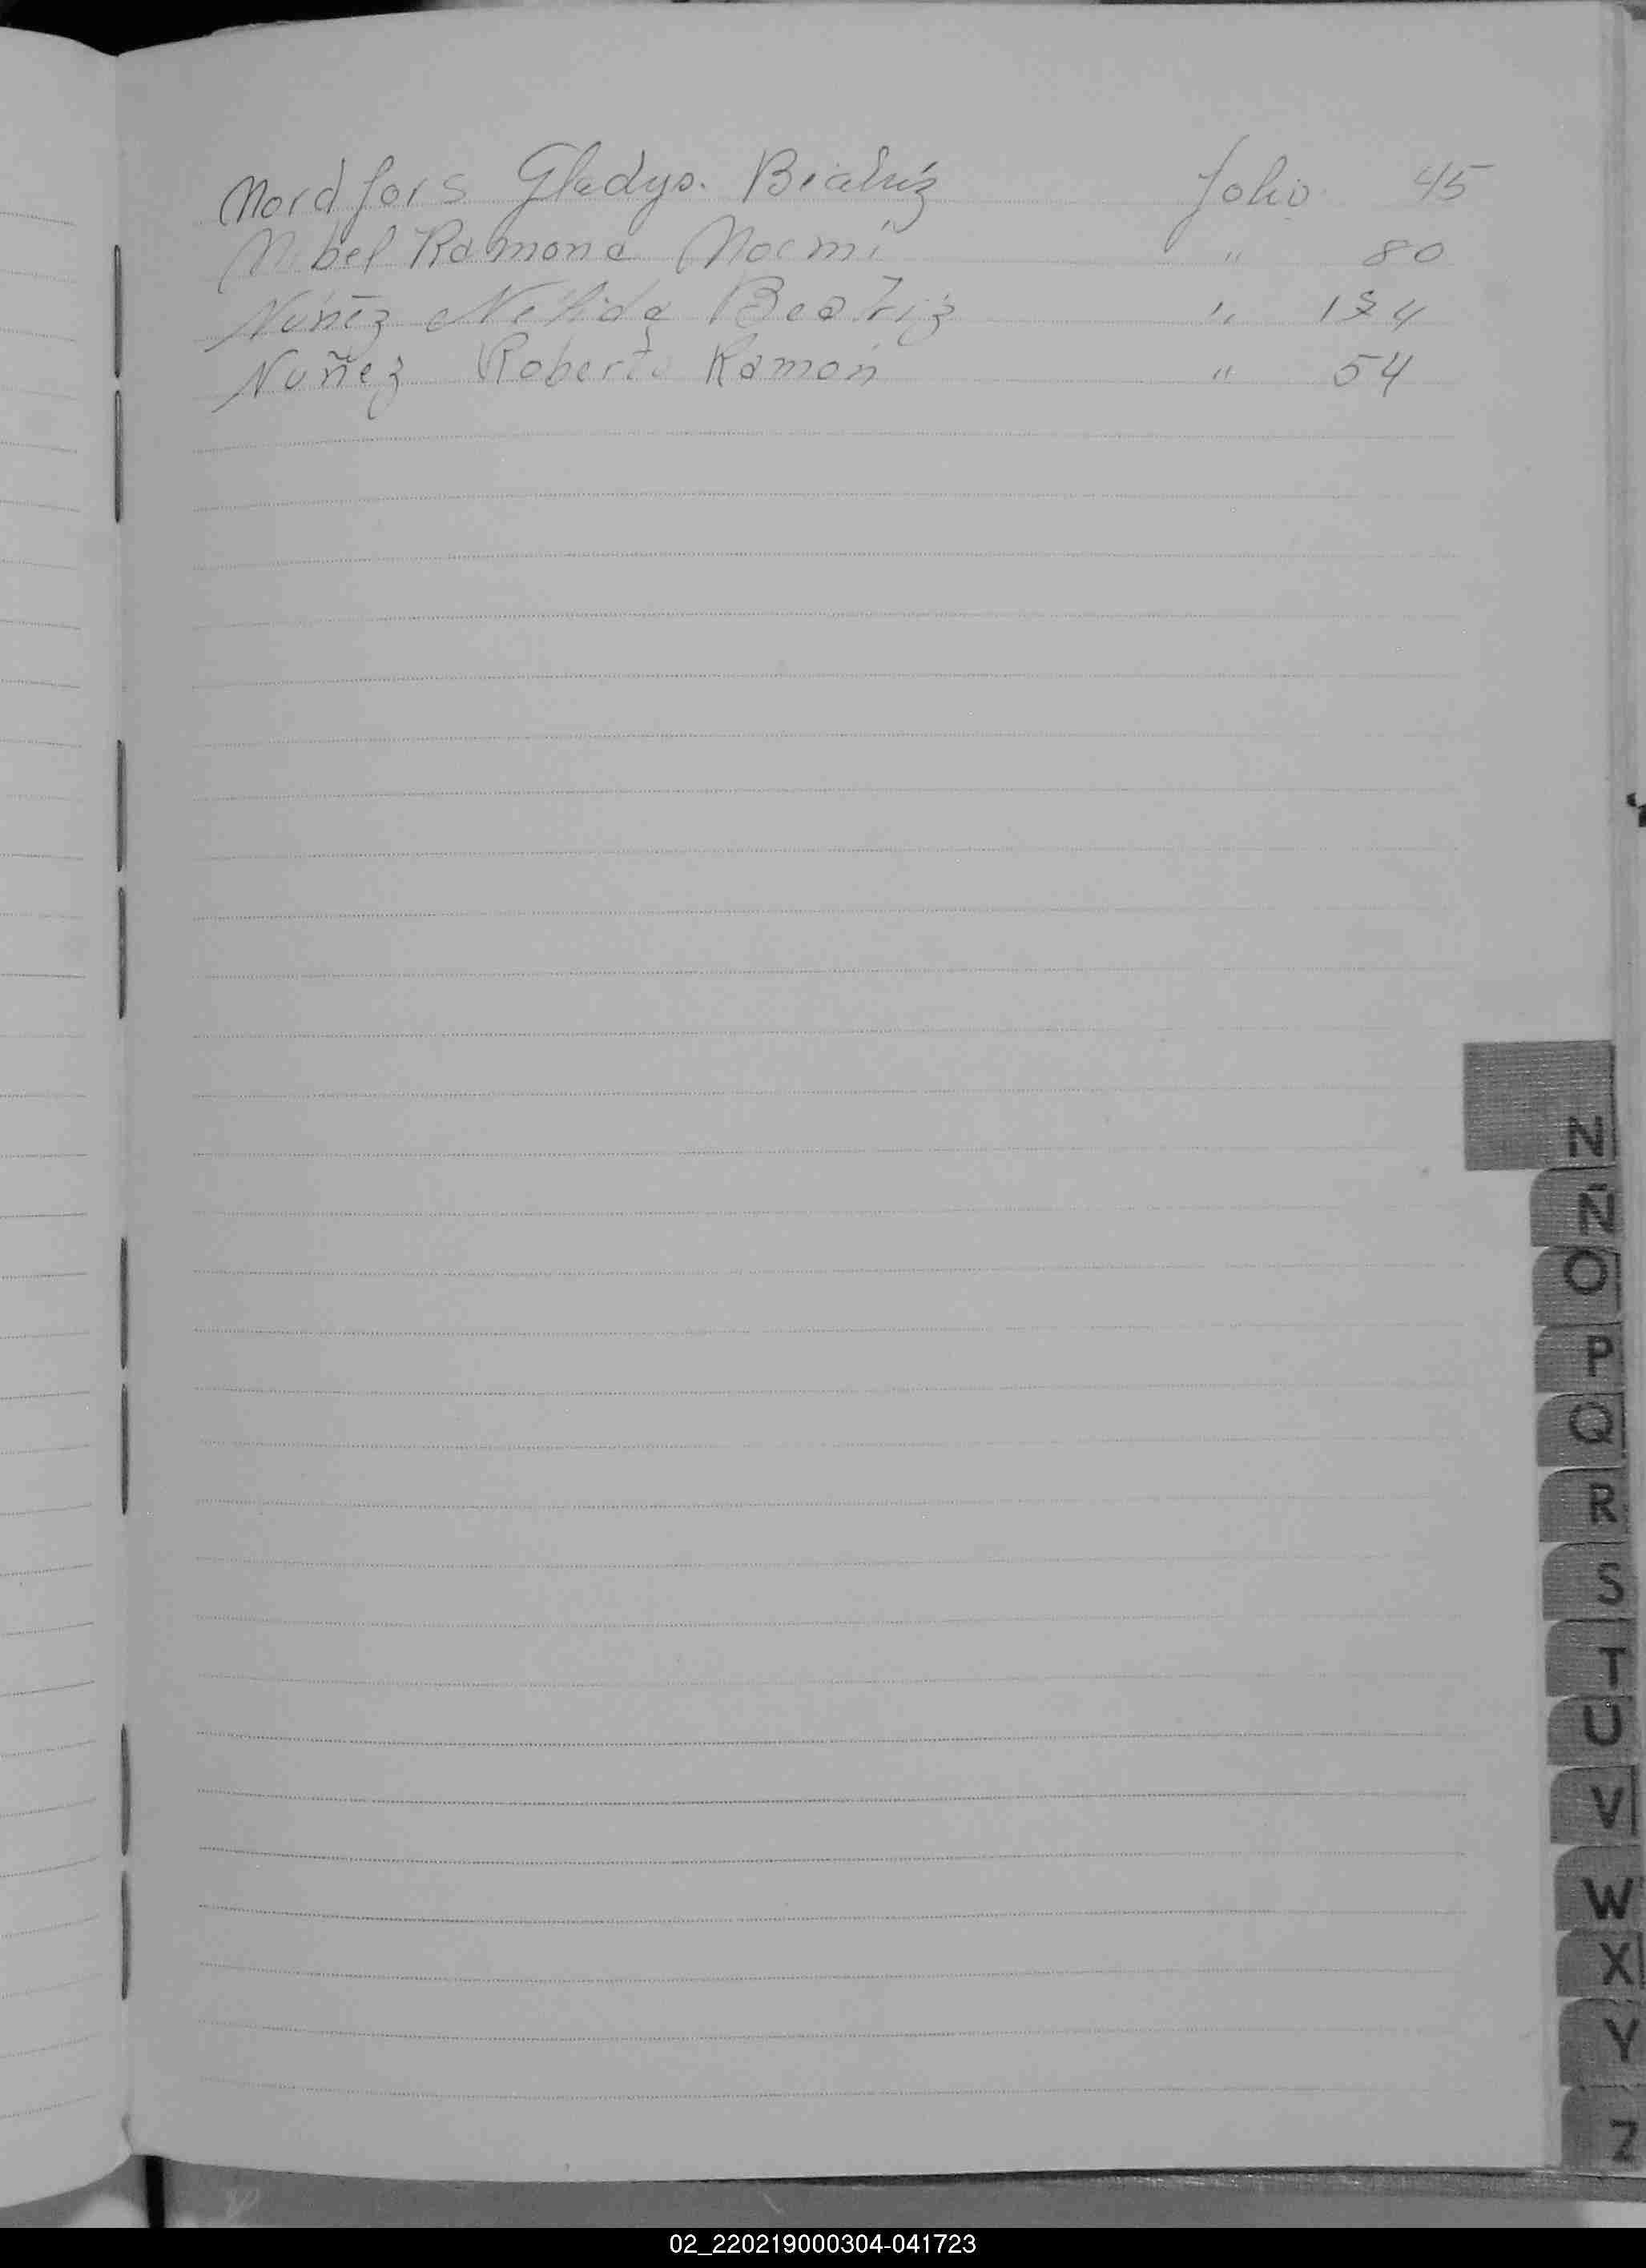 Nordfors Gladys. Beatriz folio 45
Nibel Ramona Noemi " 80
Núñez Nélida Beatriz "
Nuñez Roberto Ramón " 54
N
Ñ
O
P
Q
R
S
T
U
V
W
X
Y
Z
02_220219000304-041723